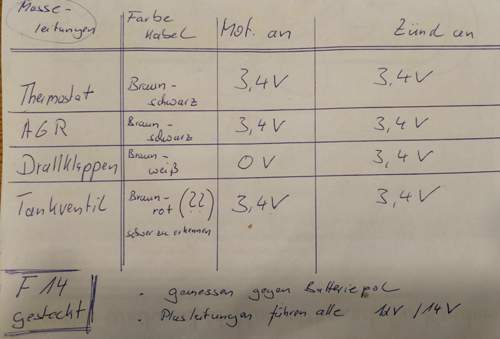 Masse-
leitungen
Farbe
Kabel
Mot. an
Zünd an
Thermostat
Braun-
schwarz
3,4V
3,4V
AGR
Braun-
schwarz
3,4V
3,4V
Drallklappen
Braun-
weiß
0V
3,4V
Tankventil
Braun-
rot (??)
schwer zu erkennen
3,4V
3,4V
F14
gesteckt
- gemessen gegen Batteriepol
- Plusleitungen führen alle 12V / 14V